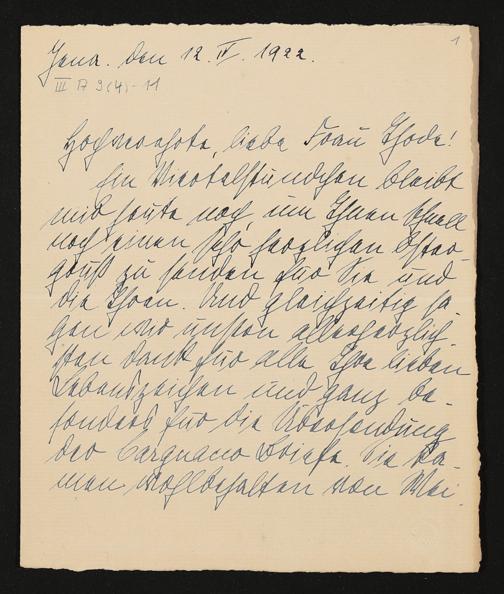 1
Jena. den 12. IV. 1922.
III A 9(4)-11
Hochverehrte, liebe Frau Thode!
Ein Viertelstündchen bleibt
mir heute noch, um Ihnen schnell
noch einen sehr herzlichen Oster-
gruß zu senden für Sie und
die Ihren. Und gleichzeitig sa-
gen wir unsern allerherzlich-
sten Dank für alle Ihre lieben
Lebenszeichen und ganz be-
sonders für die Übersendung
der Cargnaco Briefe. Sie ka-
men wohlbehalten von Wei-